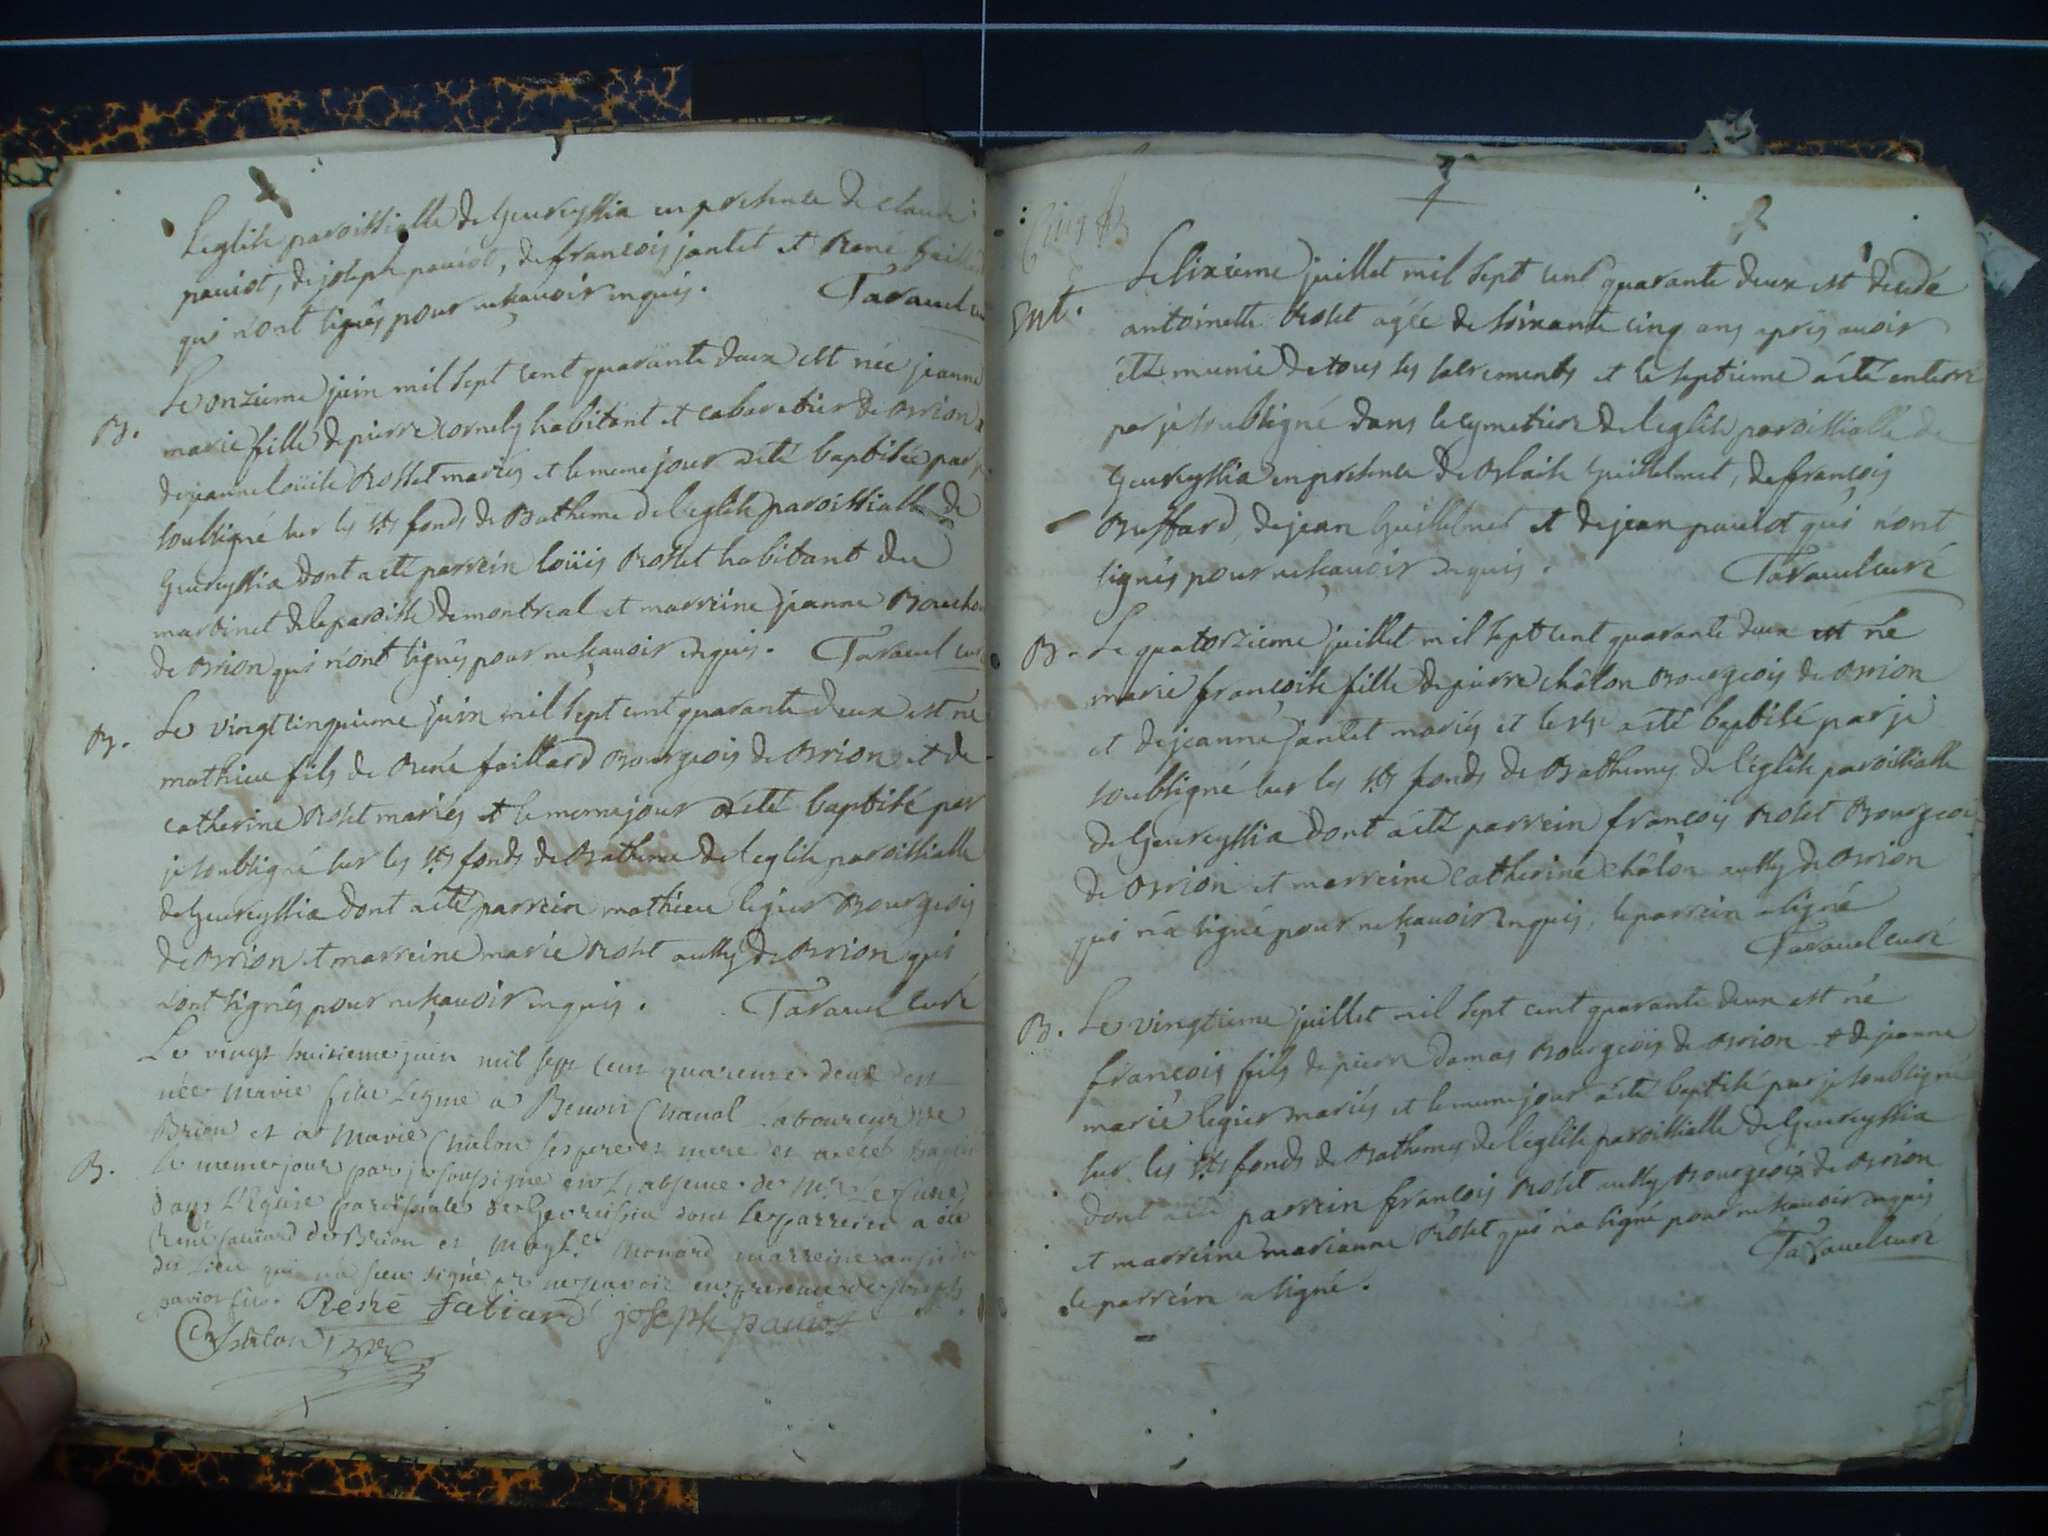 L'eglise paroissialle de Geureyssia en presence de claude
pauiot, de joseph pauiot, de francois jantet et René faillard
qui n'ont signés pour ne sçauoir enquis. Tarauel curé
B. Le onzieme juin mil sept cent quarante deux est née jeanne
marie fille de pierre cornely habitant et cabaretier de Brion &
de jeanne Loüise Rosset mariés et le meme jour a été baptisée par je
soussigné sur les sts fonds de Batheme de l'eglise paroissialle de
Geureyssia dont a été parrein loüis Rosset habitant du
martinet de la paroisse de montreal et marreine jeanne
de Brion qui n'ont signés pour ne sçauoir enquis. Tarauel curé
B. Le vingt cinquieme juin mil sept cent quarante deux est né
mathieu fils de René faillard Bourgeois de Brion et de
catherine Roset mariés et le meme jour a été baptisé par
je soussigné sur les sts fonds de Batheme de l'eglise paroissialle
de Geureyssia dont a été parrein mathieu legier Bourgeois
de Brion et marreine marie Roset aussy de Brion qui
n'ont signés pour ne sçauoir enquis. Tarauel curé
Le vingt huitieme juin mil sept cent quarente deux est
née Marie fille Legme a Benoit Chaual Laboureur de
Brion et a Marie Chalon ses pere et mere et a eté Bapt
B. le meme jour par je soussigné en L'absence de Mr Le Curé
dans L'Eglise paroissiale de Geureissia dont le parrein a été
René faillard de Brion et Monard marreine aussi
du Lieu qui n'a sceu signé en presence de joseph
paviot fils. René faliard joseph pauiot
Chalon
Ent. Le sixieme juillet mil sept cent quarante deux est decedé
antoinette Roset agée de soixante cinq ans apres auoir
été munie de tous les sacrements et le septieme a été enterré
par je soussigné dans le cymetiere de l'eglise paroissialle de
Geureyssia en presence de Blaise Guillelmet, de françois
Buffard, de jean Guillelmet et de jean pauiot qui n'ont
signés pour ne sçauoir enquis. Tarauel curé
B. Le quatorzieme juillet mil sept cent quarante deux est né
marie françoise fille de pierre châlon Bourgeois de Brion
et de jeanne Jantet mariés et le a été baptisé par je
soussigné sur les sts fonds de Bathemes de l'eglise paroissialle
de Geureyssia dont a été parrein françois Roset Bourgeois
de Brion et marreine catherine châlon aussy de Brion
qui n'a signé pour ne sçauoir enquis, le parrein a signé
Tarauel curé
B. Le vingtieme juillet mil sept cent quarante deux est né
françois fils de pierre damas Bourgeois de Brion & de jeanne
marie legier mariés et le meme jour a été baptisé par je soussigné
sur les sts fonds de Bathemes de l'eglise paroissialle de Geureyssia
dont a été parrein francois Roset aussy Bourgeois de Brion
et marreine marianne Roset qui n'a signé pour ne sçauoir enquis
le parrein a signé. Tarauel curé